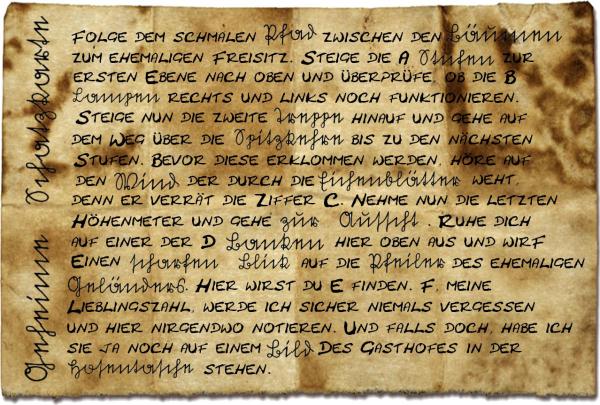 Geheime Schatzkarte
Folge dem schmalen Pfad zwischen den Bäumen
zum ehemaligen Freisitz. Steige die A Stufen zur
ersten Ebene nach oben und überprüfe, ob die B
Lampen rechts und links noch funktionieren.
Steige nun die zweite Treppe hinauf und gehe auf
dem Weg über die Spitzkehre bis zu den nächsten
Stufen. Bevor diese erklommen werden, höre auf
den Wind der durch die Eichenblätter weht,
denn er verrät die Ziffer C. Nehme nun die letzten
Höhenmeter und gehe zur Aussicht. Ruhe dich
auf einer der D Banken hier oben aus und wirf
Einen scharfen Blick auf die Pfeiler des ehemaligen
Geländers. Hier wirst du E finden. F, meine
Lieblingszahl, werde ich sicher niemals vergessen
und hier nirgendwo notieren. Und falls doch, habe ich
sie ja noch auf einem Bild Des Gasthofes in der
Hosentasche stehen.